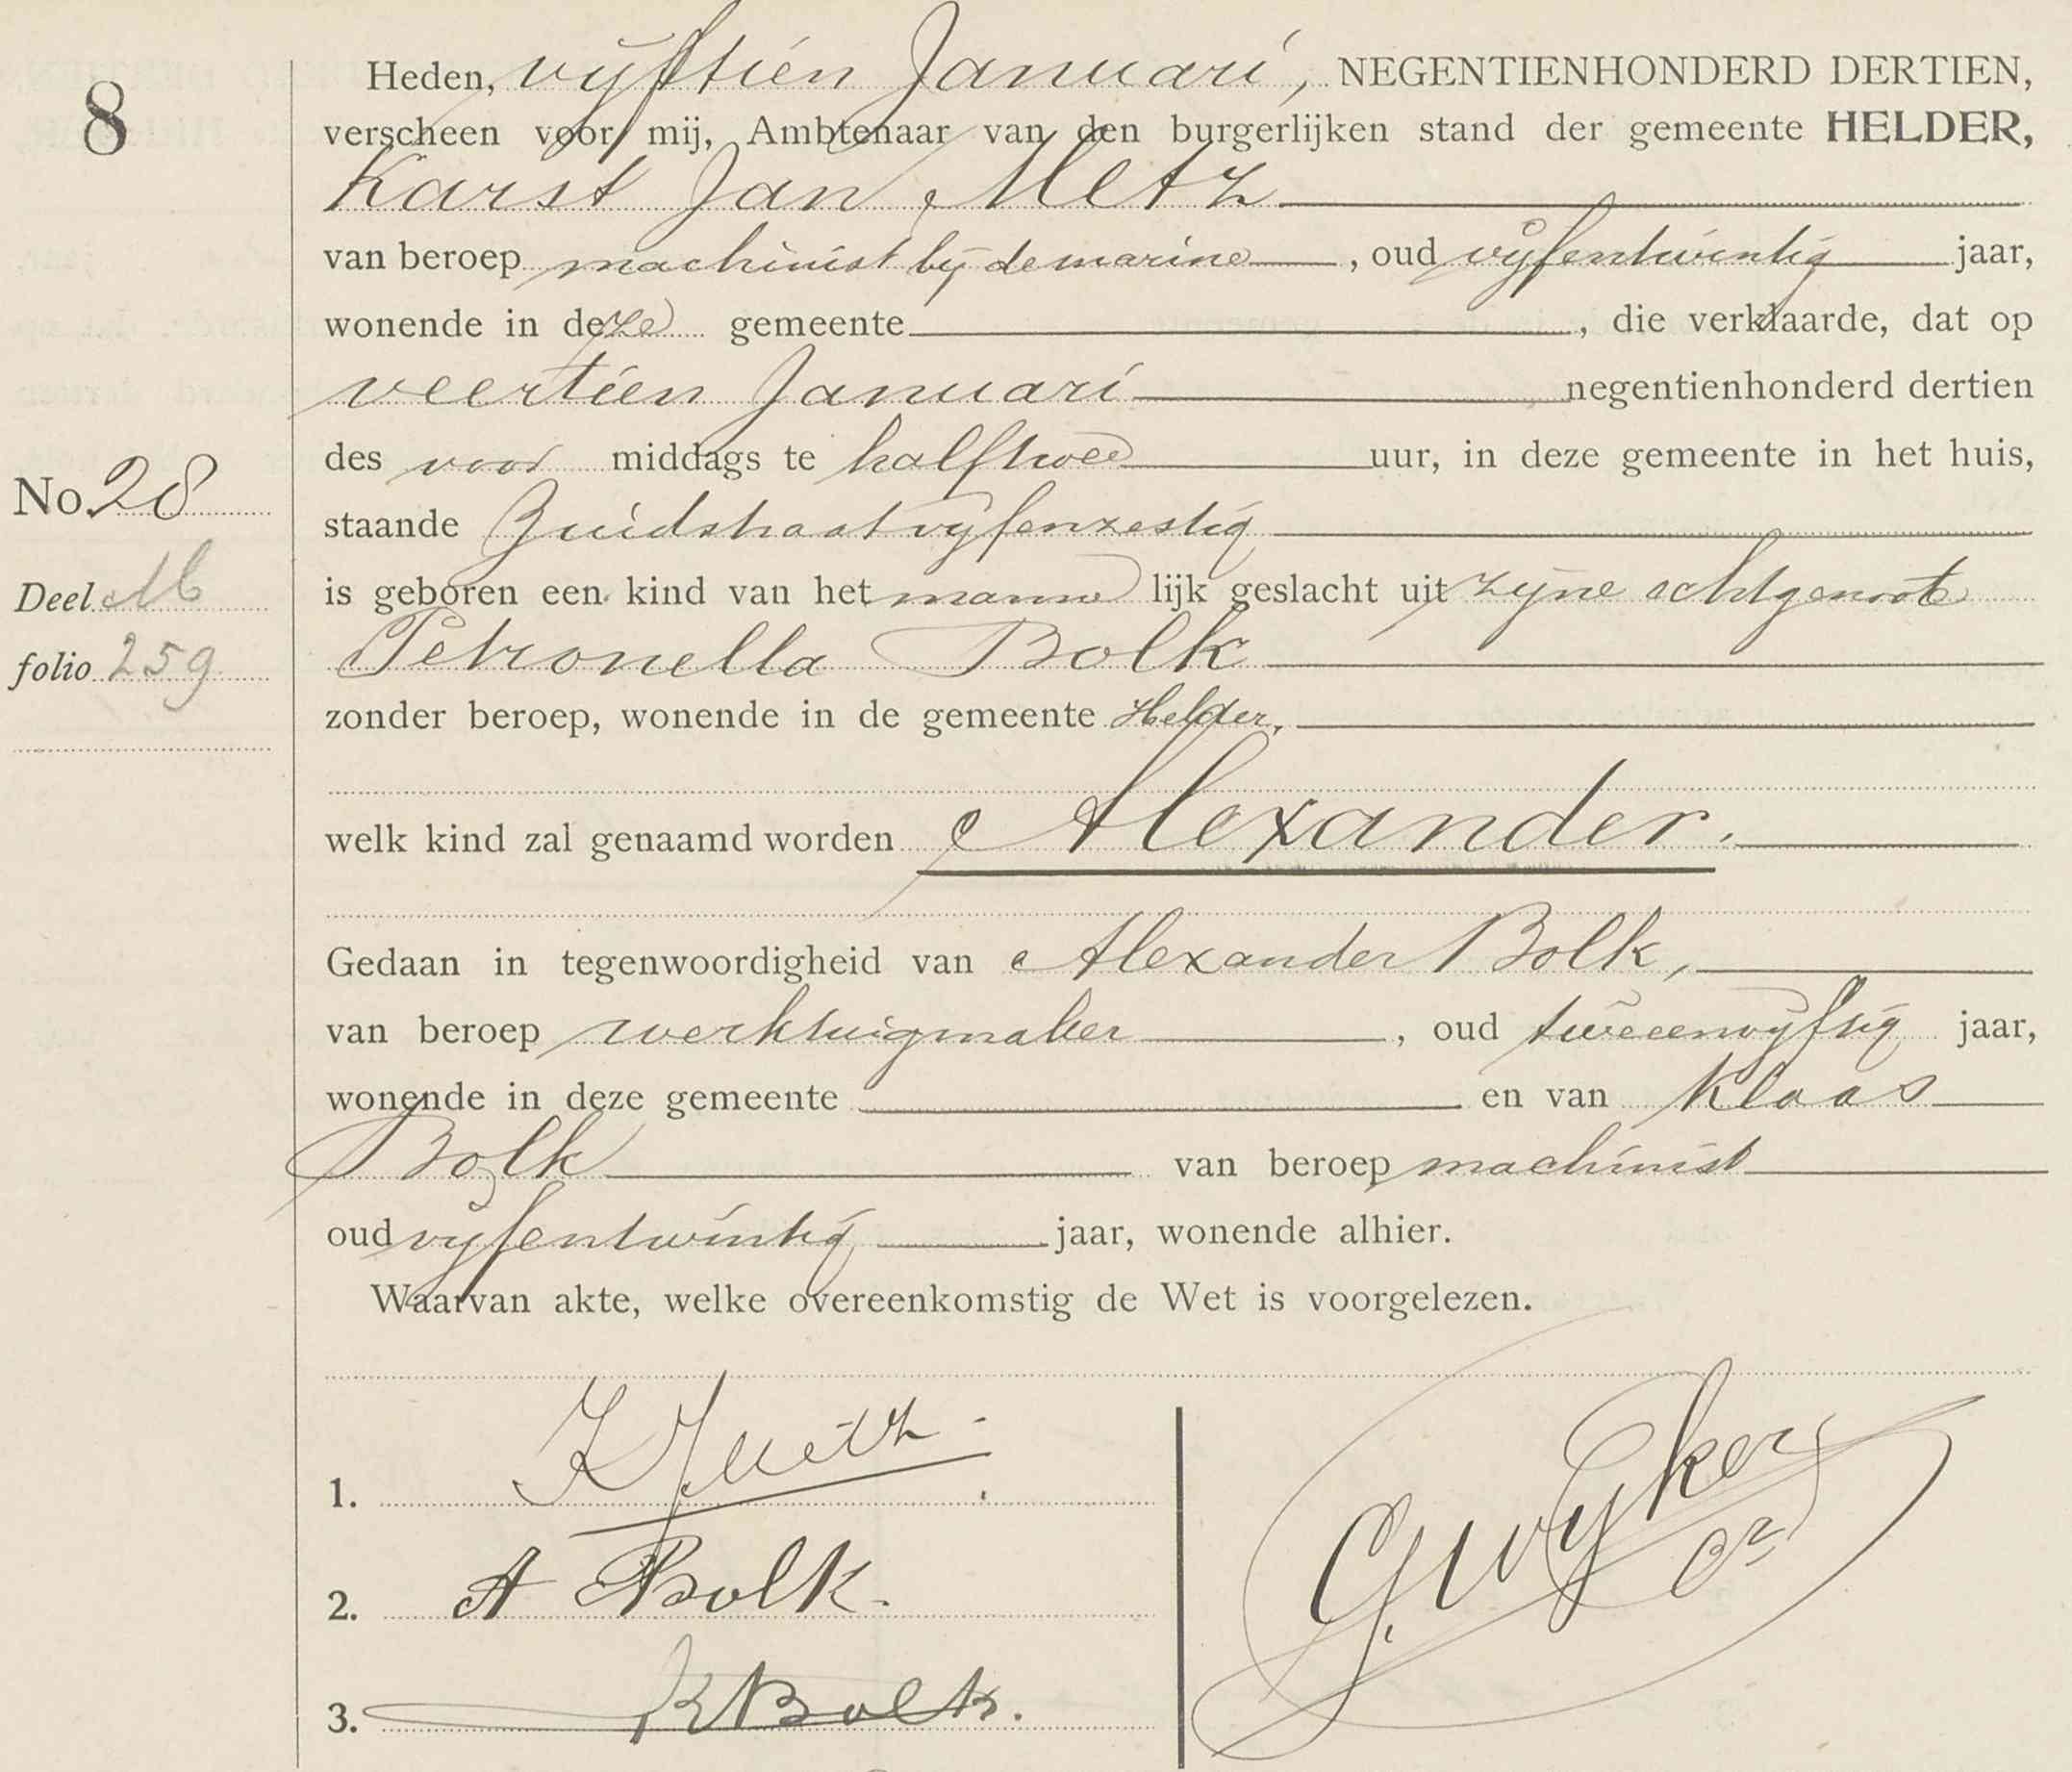 8
Heden, vijftien Januari, NEGENTIENHONDERD DERTIEN,
verscheen voor mij, Ambtenaar van den burgerlijken stand der gemeente HELDER,
Karst Jan Metz
van beroep machinist bij de marine, oud vijfentwintig jaar,
wonende in deze gemeente, die verklaarde, dat op
veertien Januari negentienhonderd dertien
des voor middags te halftwee uur, in deze gemeente in het huis,
No. 28
staande Zuidstraat vijfenzestig
Deel M
is geboren een kind van het manne lijk geslacht uit zijne echtgenoote
folio 259
Petronella Bolk
zonder beroep, wonende in de gemeente Helder,
welk kind zal genaamd worden Alexander.
Gedaan in tegenwoordigheid van Alexander Bolk,
van beroep werktuigmaker, oud tweeenvijftig jaar,
wonende in deze gemeente en van Klaas
Bolk van beroep machinist
oud vijfentwintig jaar, wonende alhier.
Waarvan akte, welke overeenkomstig de Wet is voorgelezen.
1. K J Metz.
2. A Bolk.
3. K Bolk.